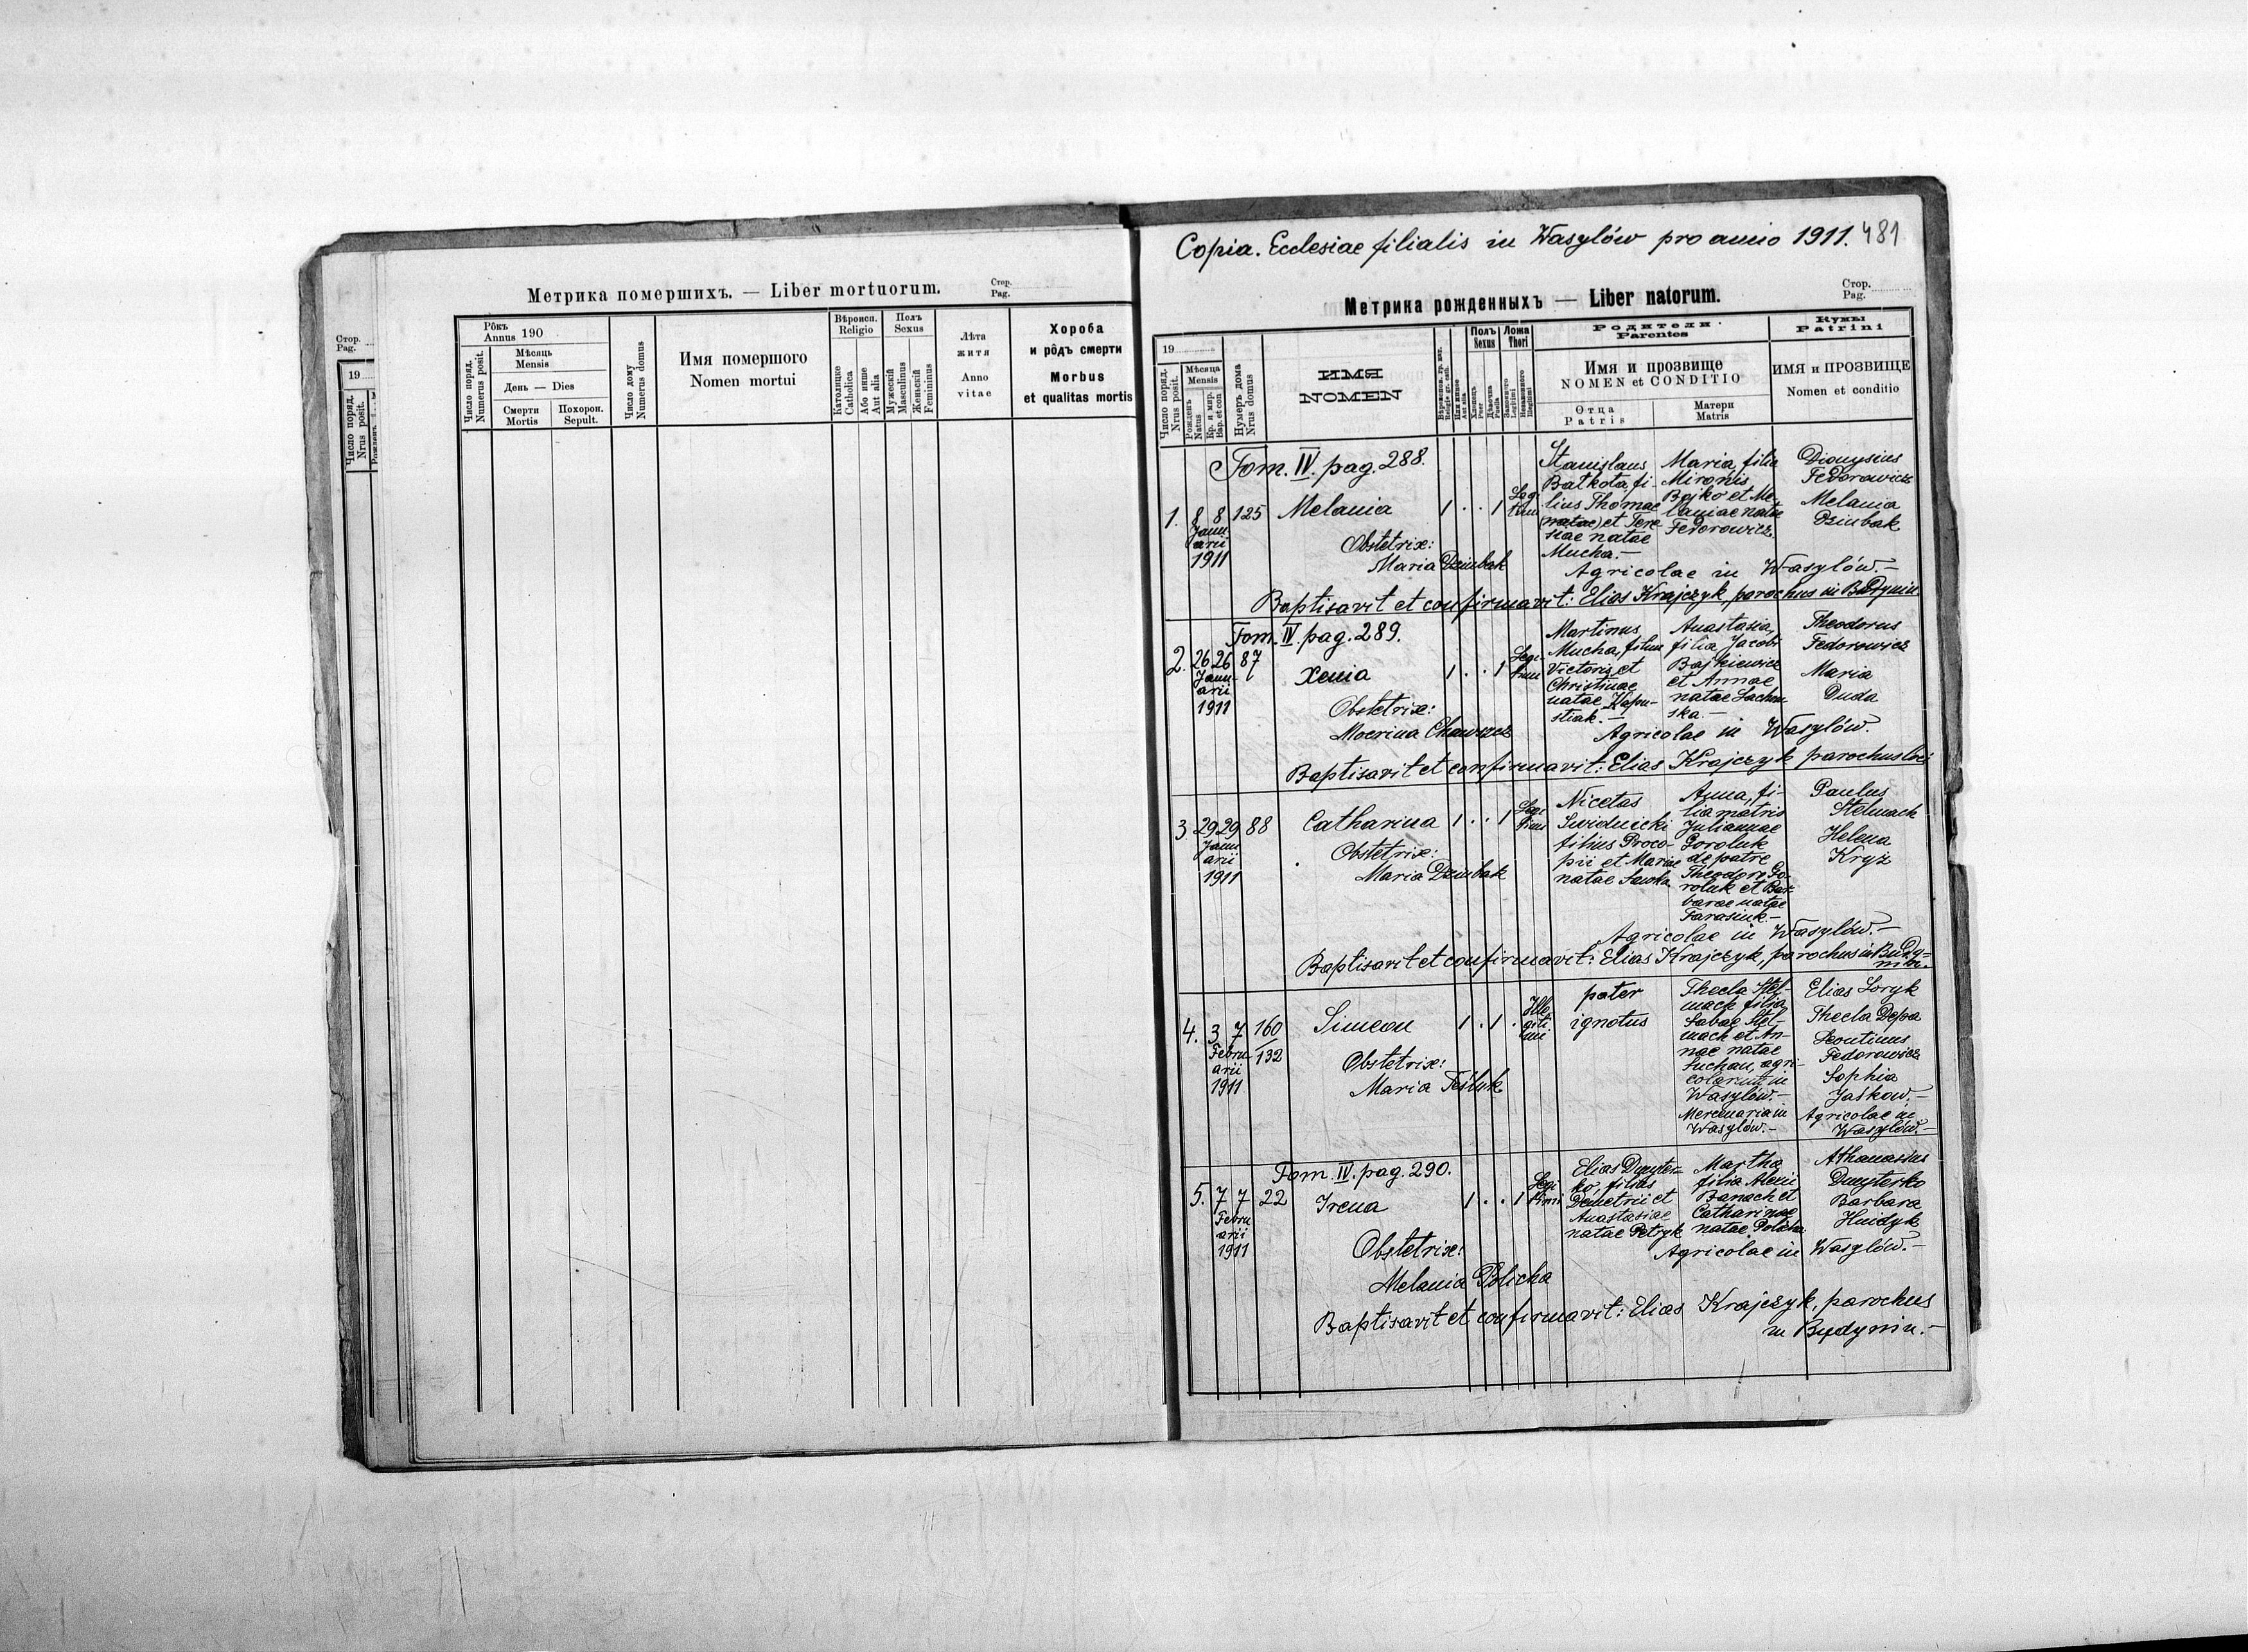 Метрика помершихъ. — Liber mortuorum.
Стор.
Pag.
Рôкъ
Annus 190
Мѣсяць
Mensis
День — Dies
Смерти
Mortis
Похорон.
Sepult.
Число поряд.
Numerus posit.
Число дому
Numerus domus
Имя помершого
Nomen mortui
Вѣроисп.
Religio
Католицке
Catholica
Або инше
Aut alia
Полъ
Sexus
Мужескій
Masculinus
Женьскій
Femininus
Лѣта
житя
Anno
vitae
Хороба
и рôдъ смерти
Morbus
et qualitas mortis
Стор.
Pag.
19
Число поряд.
Nrus posit.
Copia. Ecclesiae filialis in Wasylów pro anno 1911. 481
Метрика рожденныхъ — Liber natorum.
Стор.
Pag.
19
Число поряд.
Nrus posit.
Мѣсяца
Mensis
Рожденъ
Natus
Кр. и мир.
Bap. et con
Нумеръ дома
Nrus domus
ИМЯ
NOMEN
Полъ
Sexus
Ложа
Thori
Родители
Parentes
Имя и прозвище
NOMEN et CONDITIO
Отца
Patris
Матери
Matris
Кумы
Patrini
ИМЯ и ПРОЗВИЩЕ
Nomen et conditio
Tom. IV. pag. 288.
1. 8 8 125 Melania 1 . . 1
Januarii
1911
Stanislaus
Batkota, fi-
lius Thomae
(natae) et Tere
siae natae
Mucha.—
Maria, filia
Mironis
Bojko et Me-
laniae natae
Fedorowicz.
Dionysius
Fedorowicz
Melania
Dziubak
Obstetrix:
Maria Dziubak
Agricolae in Wasylów.—
Baptisavit et confirmavit: Elias Krajczyk, parochus in Budynin
Tom. IV. pag. 289.
2. 26 26 87 Xenia 1 . . 1
Januarii
1911
Martinus
Mucha, filius
Victoris et
Christinae
natae Kapu-
stiak.—
Anastasia,
filia Jacobi
Bajkiewicz
et Annae
natae Lachow
ska.—
Theodorus
Fedorowicz
Maria
Duda
Obstetrix:
Agricolae in Wasylów.
Baptisavit et confirmavit: Elias Krajczyk parochus loci
3. 29 29 88 Catharina 1 . . 1
Januarii
1911
Nicetas
Swidnicki
filius Proco-
pii et Mariae
natae
Anna, fi-
lia matris
Juliannae
Goroluk
de patre
Theodoro Go-
roluk et Bar-
barae natae
Tarasiuk.—
Paulus
Stelmach
Helena
Kryż
Obstetrix:
Maria Dziubak
Agricolae in Wasylów.—
Baptisavit et confirmavit: Elias Krajczyk, parochus in Budy-
nin.
4. 3 7 160/132 Simeon 1 . 1 .
Illegitimi
Februarii
1911
pater
ignotus
Thecla Stel-
mach filia
Sabae Stel-
mach et An-
nae natae
Suchan, agri-
colarum in
Wasylów.—
Mercenaria in
Wasylów.—
Elias Soryk
Thecla Depa
Leontinus
Fedorowicz
Sophia
Jaśkow.—
Agricolae in
Wasylów.—
Obstetrix:
Maria Teśluk
Tom. IV. pag. 290.
5. 7 7 22 Irena 1 . . 1
Februarii
1911
Elias Dmyter-
ko, filius
Demetrii et
Anastasiae
natae Petryk
Martha
filia Alexii
Banach et
Catharinae
natae Policha
Athanasius
Dmyterko
Barbara
Hnidyk
Obstetrix:
Melania Policha
Agricolae in Wasylów.—
Baptisavit et confirmavit: Elias Krajczyk, parochus
in Budynin.—